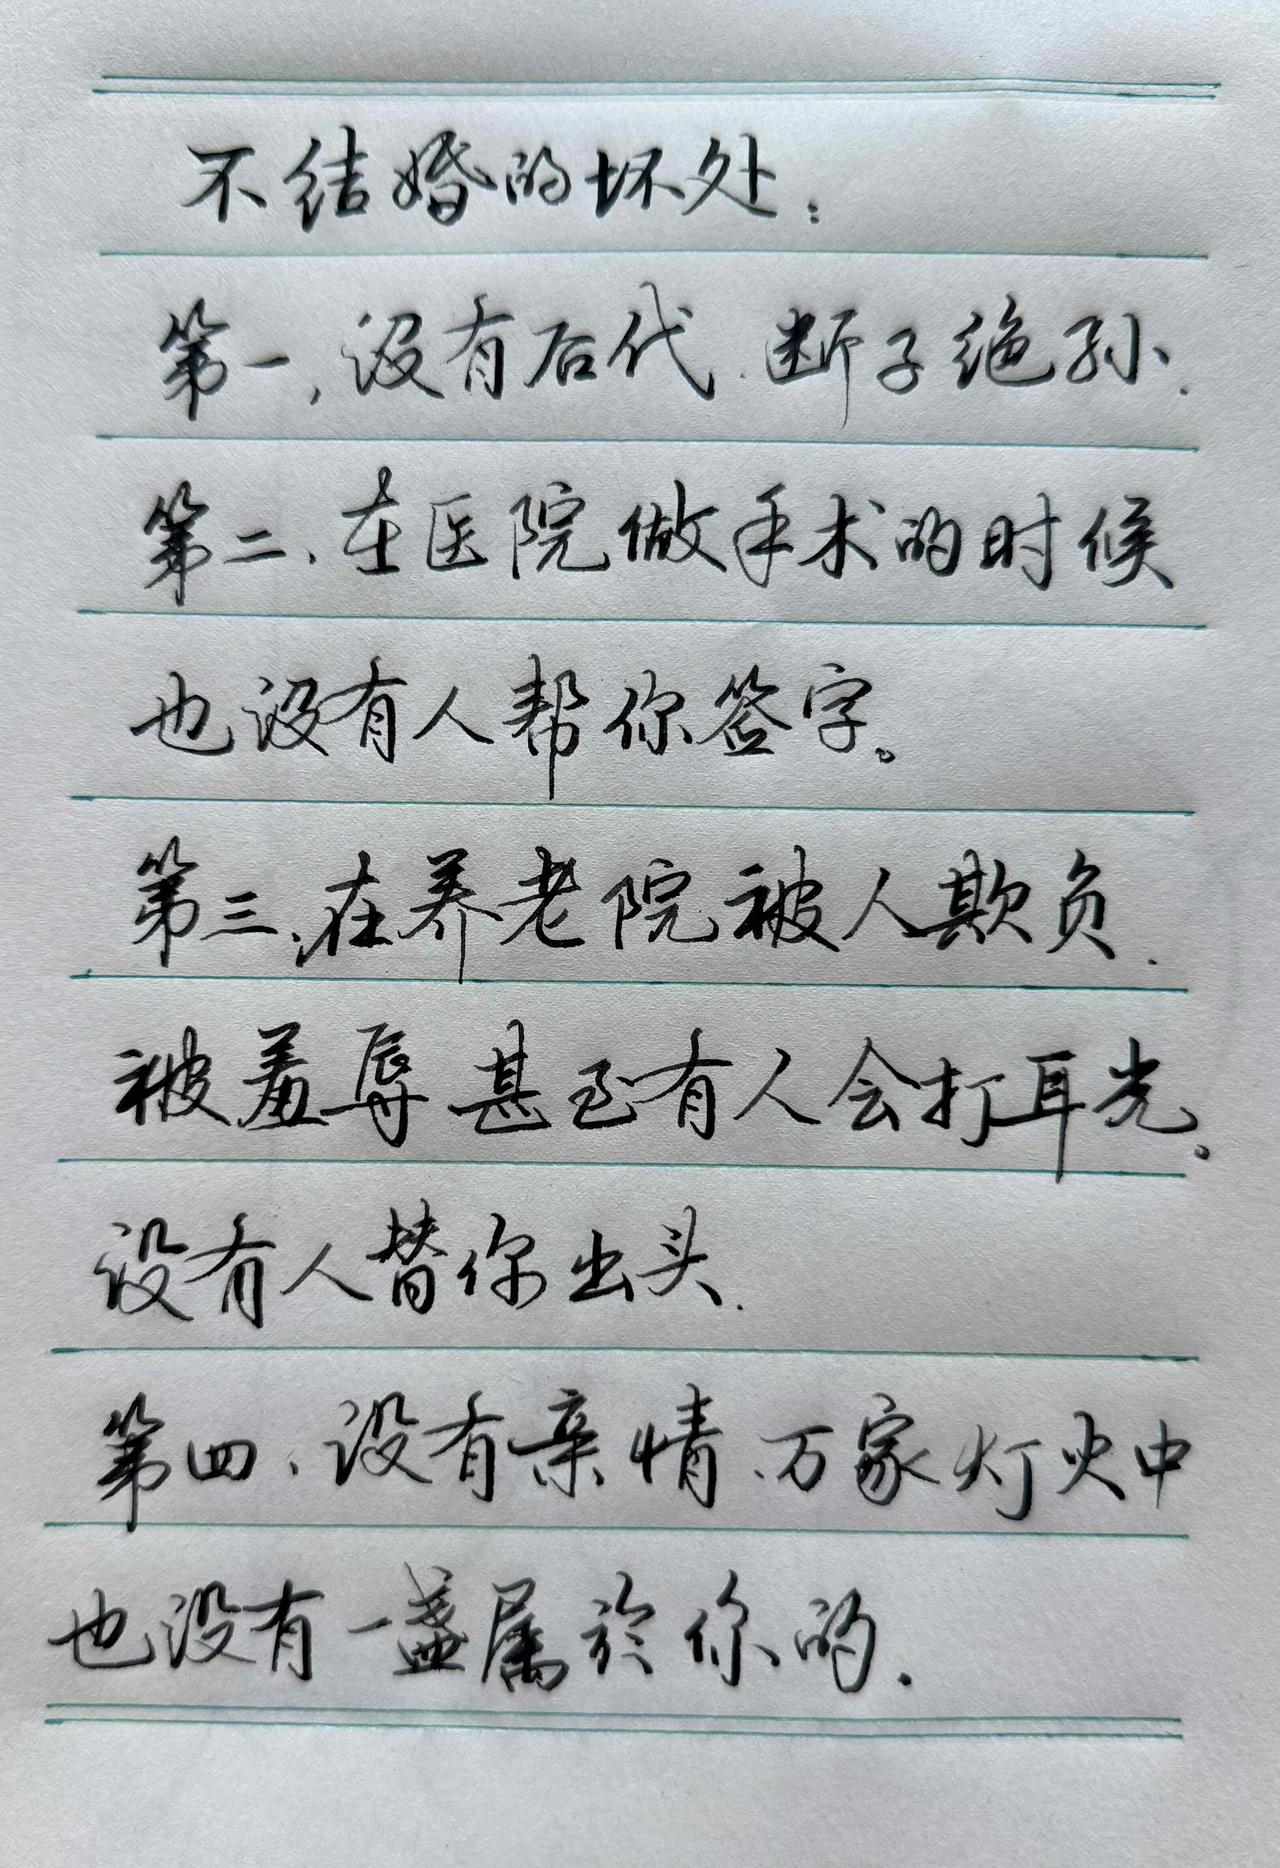 不结婚的坏处：
第一，没有后代.断子绝孙.
第二、在医院做手术的时候
也没有人帮你签字。
第三、在养老院被人欺负.
被羞辱甚至有人会打耳光。
没有人替你出头.
第四、没有亲情、万家灯火中
也没有一盏属於你的.